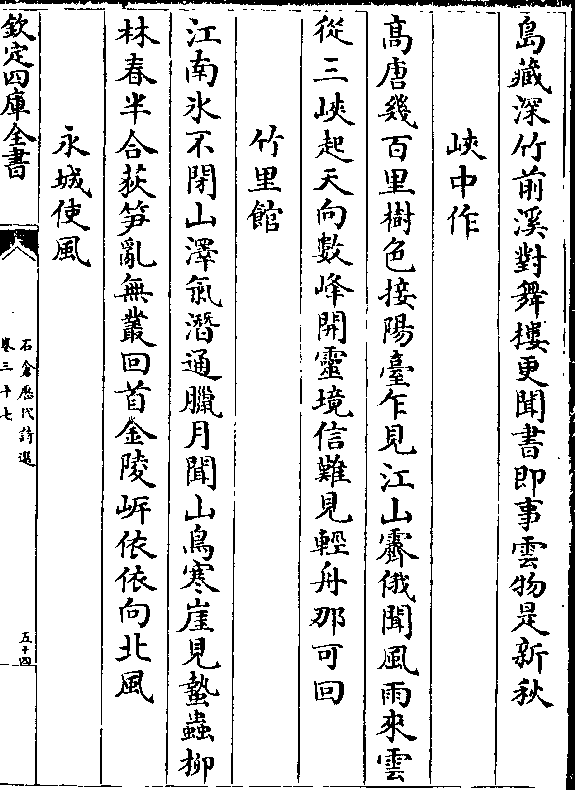 島藏深竹前溪對舞樓更聞書即事雲物是新秋
峽中作
髙唐幾百里樹色接陽臺乍見江山霽俄聞風雨來雲
從三峽起天向數峰開靈境信難見輕舟那可回
竹里館
江南氷不閉山澤氣潛通臘月聞山鳥寒崖見蟄蟲柳
林春半合荻笋亂無叢回首金陵岍依依向北風
永城使風
欽定四庫全書
石倉歷代詩選
卷三十七
五十四